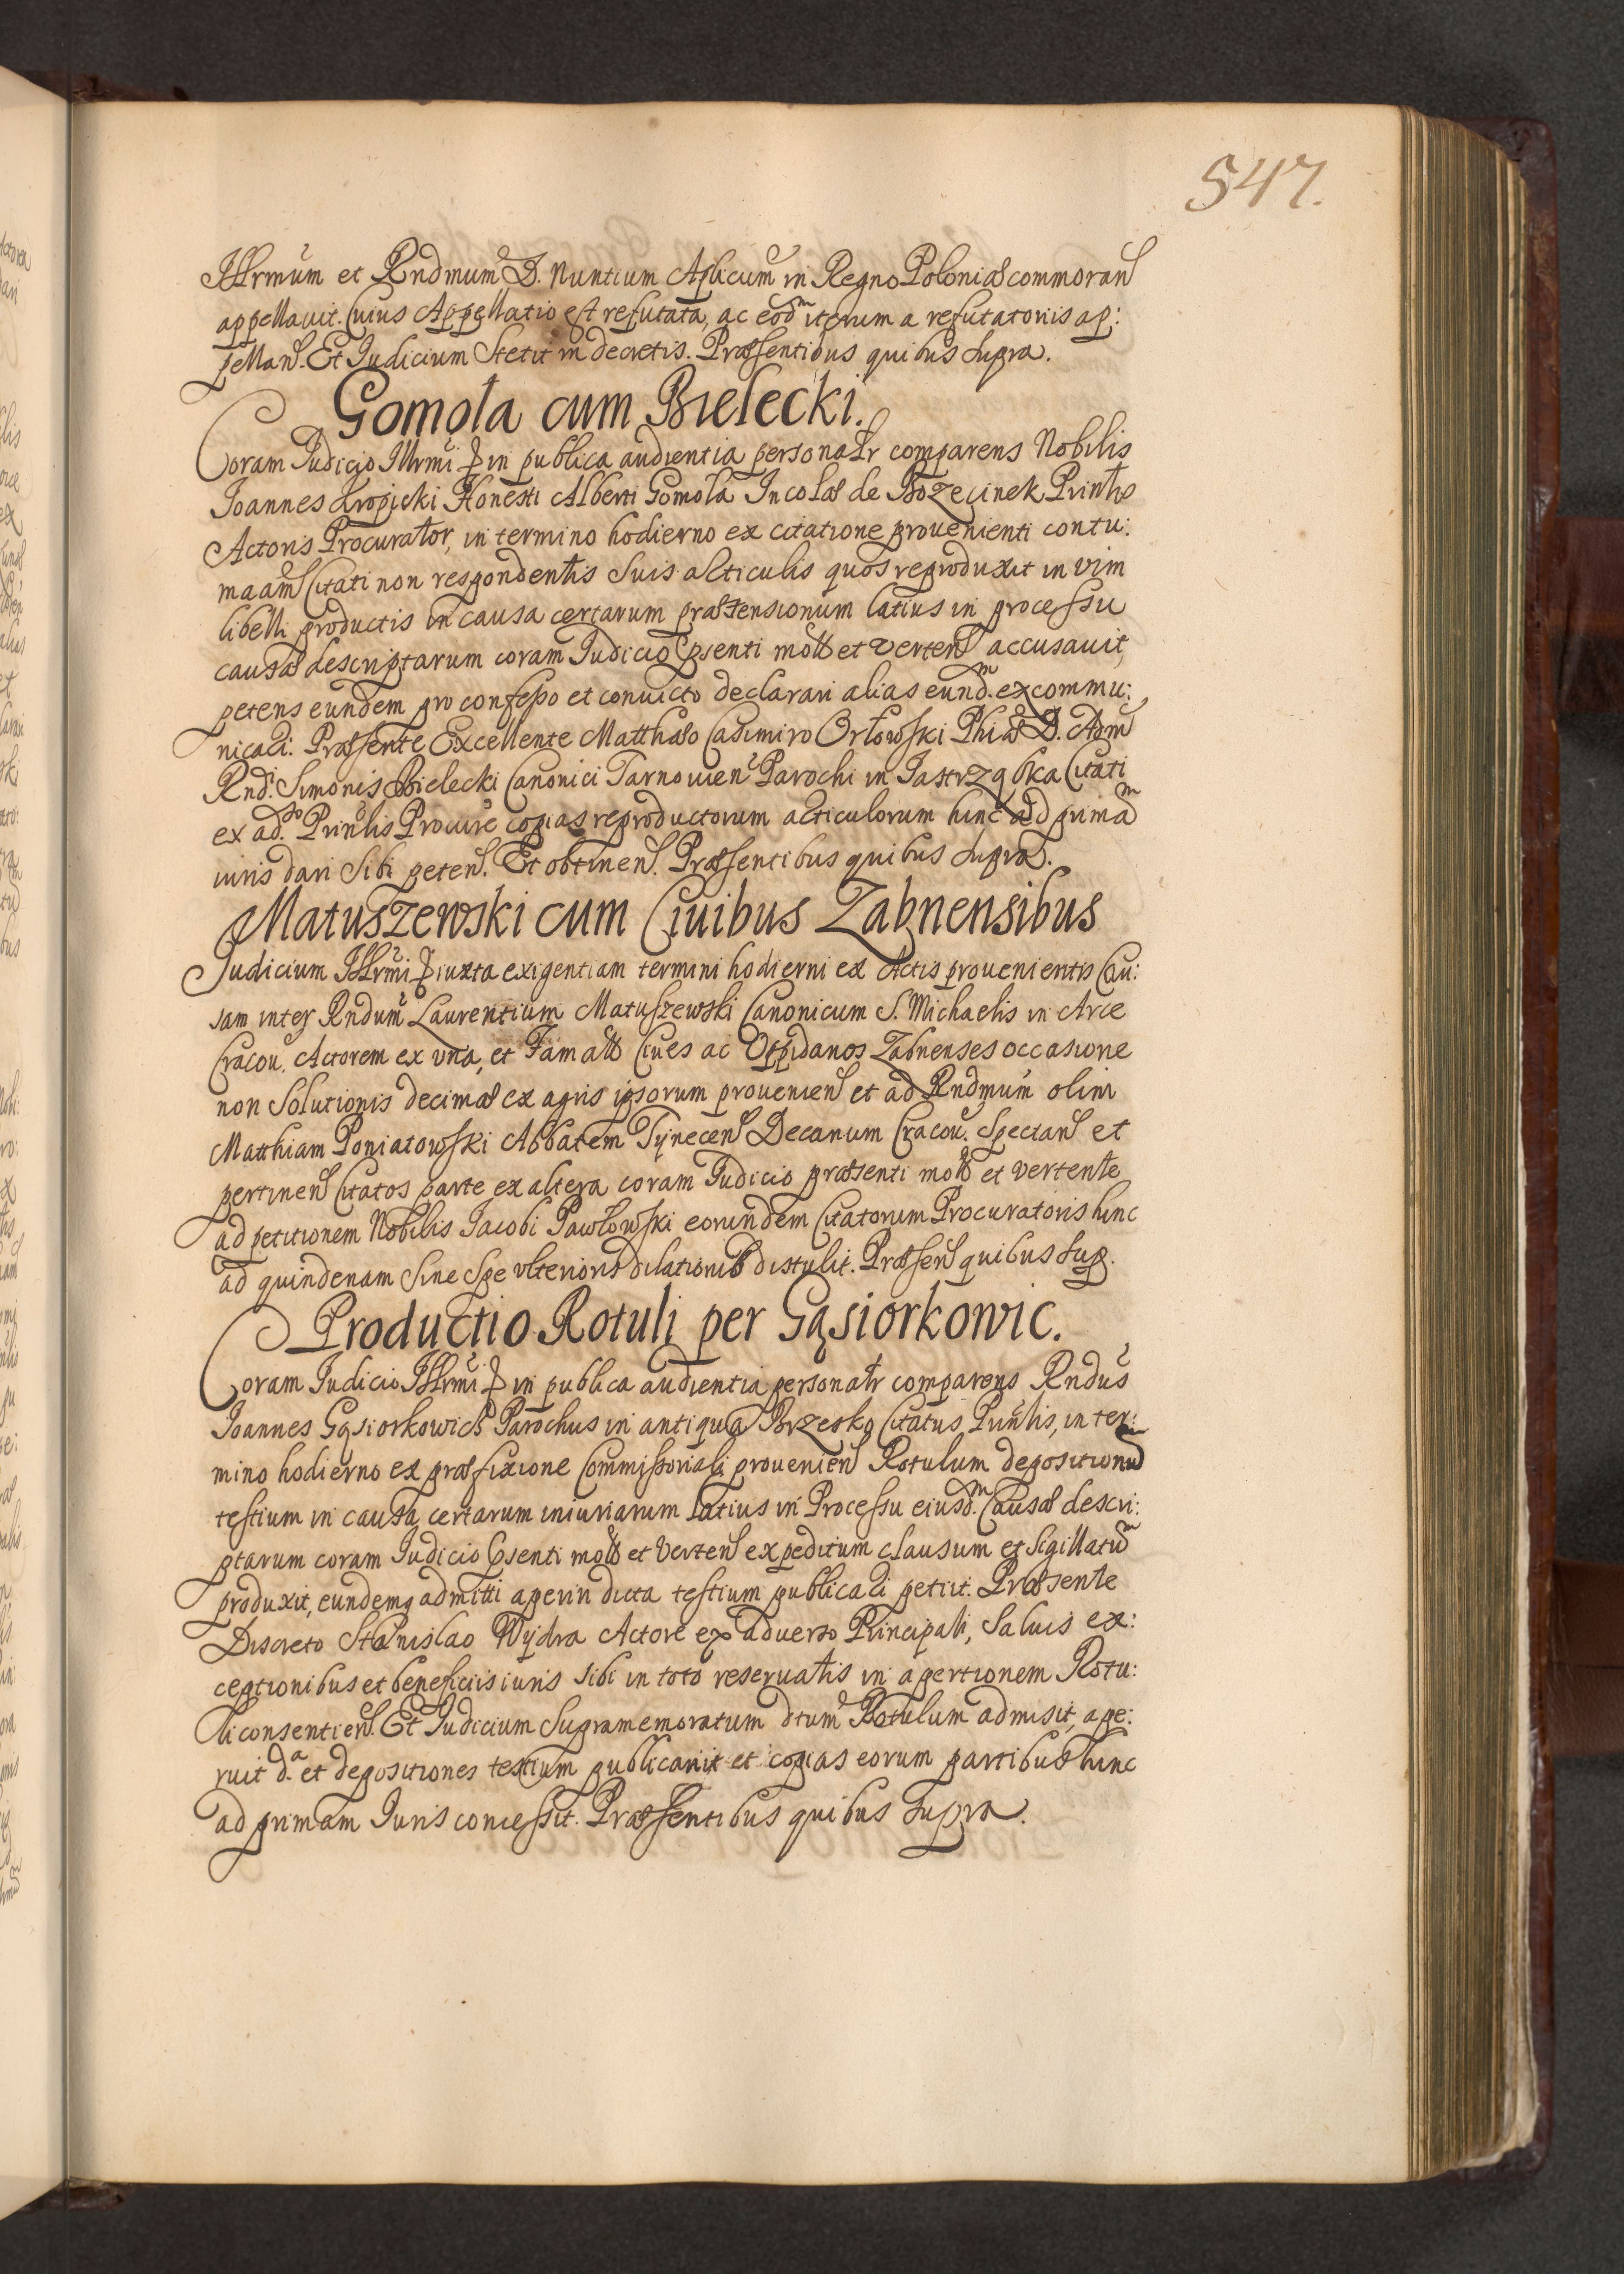 547.
Illrmum et Rndmum D. Nuntium Aplicum in Regno Poloniæ commoran
appellavit. Cuius Appellatio est refutata, ac eodm iterum a refutatoriis ap:
pellan. Et Iudicium stetit in decretis. Præsentibus quibus supra.
Gomoła cum Bielecki.
Coram Iudicio Illrmi in publica audientia personalr comparens Nobilis
Ioannes Kropicki Honesti Alberti Gomoła Incolæ de Bozęcinek Prinlis
Actoris Procurator, in termino hodierno ex citatione provenienti contu:
maam Citati non respondentis suis articulis quos reproduxit in vim
libelli productis in causa certarum prætensionum latius in processu
causæ descriptarum coram Iudicio psenti mota et verten accusavit,
petens eundem pro confesso et convicto declarari alias eundm. excommu:
nicari: Præsente Excellente Matthæo Casimiro Orłowski Phiæ D. Adm
Rndi. Simonis Bielecki Canonici Tarnovien Parochi in Iastrząbka Citati
ex ad.so Prinlis Procure copias reproductorum articulorum hinc ad primam
iuris dari sibi peten. Et obtinen. Præsentibus quibus supra.
Matuszewski cum Civibus Zabnensibus
Iudicium Illrmi iuxta exigentiam termini hodierni ex Actis provenientis Cau:
sam inter Rndum Laurentium Matuszewski Canonicum S. Michaelis in Arce
Cracov. Actorem ex una, et Famatos Cives ac Oppidanos Zabnenses occasione
non solutionis decimæ ex agris ipsorum provenien et ad Rndmum olim
Matthiam Poniatowski Abbatem Tÿnecen Decanum Cracov. spectan et
pertinen Citatos parte ex altera coram Iudicio præsenti mota et vertente
ad petitionem Nobilis Iacobi Pawłowski eorundem Citatorum Procuratoris hinc
ad quindenam sine spe ulterioris dilationis distulit. Præsen quibus sup.
Productio Rotuli per Gąsiorkowic.
Coram Iudicio Illrmi in publica audientia personalr comparens Rndus
Ioannes Gąsiorkowicz Parochus in antiqua Brzesko Citatus Prinlis, in ter:
mino hodierno ex præfixione Commissoriali provenien Rotulum depositionum
testium in causa certarum iniuriarum latius in Processu eiusdm. Causæ descri:
ptarum coram Iudicio psenti mota et verten expeditum clausum et sigillatum
produxit, eundemq admitti aperiri dicta testium publicari petiit. Præsente
Discreto Stanislao Wÿdra Actore ex adverso Principali, salvis ex:
ceptionibus et beneficiis iuris sibi in toto reservatis in apertionem Rotu:
li consentien. Et Iudicium supramemoratum dtum Rotulum admisit, ape:
ruit d.a et depositiones testium publicavit et copias eorum partibus hinc
ad primam Iuris concessit. Præsentibus quibus supra.